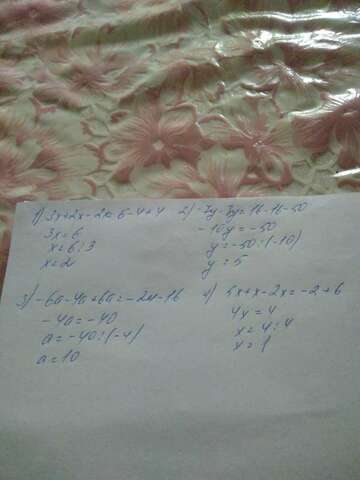 1) 3x+2x-2x=6-4+4
3x=6
x=6:3
x=2
2) -7y-3y=16-16-50
-10y=-50
y=-50:(-10)
y=5
3) -6a-4a+6a=-24-16
-4a=-40
a=-40:(-4)
a=10
4) 5x+x-2x=-2+6
4x=4
x=4:4
x=1